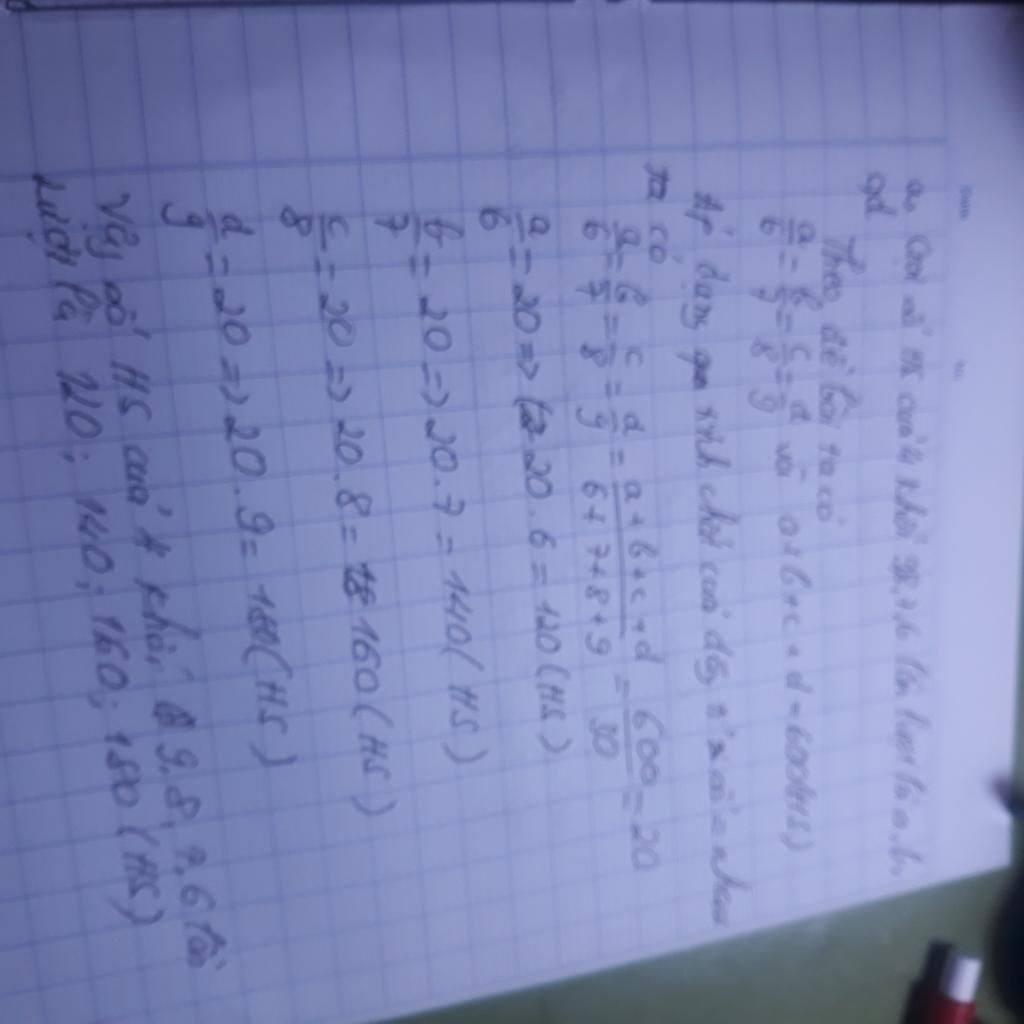 a, Gọi số HS của 4 khối 9,8,7,6 lần lượt là a, b,
c,d
Theo đề bài ta có
a/6 = b/7 = c/8 = d/9 và a+b+c+d=600(HS)
Áp dụng tính chất của dãy tỉ số = nhau
ta có
a/6 = b/7 = c/8 = d/9 = a+b+c+d/6+7+8+9 = 600/30 = 20
a/6 = 20 => 20.6 = 120 (HS)
b/7 = 20 => 20.7 = 140 (HS)
c/8 = 20 => 20.8 = 160 (HS)
d/9 = 20 => 20.9 = 180 (HS)
Vậy số HS của 4 khối 9,8,7,6 lần
lượt là 120; 140; 160; 180 (HS)